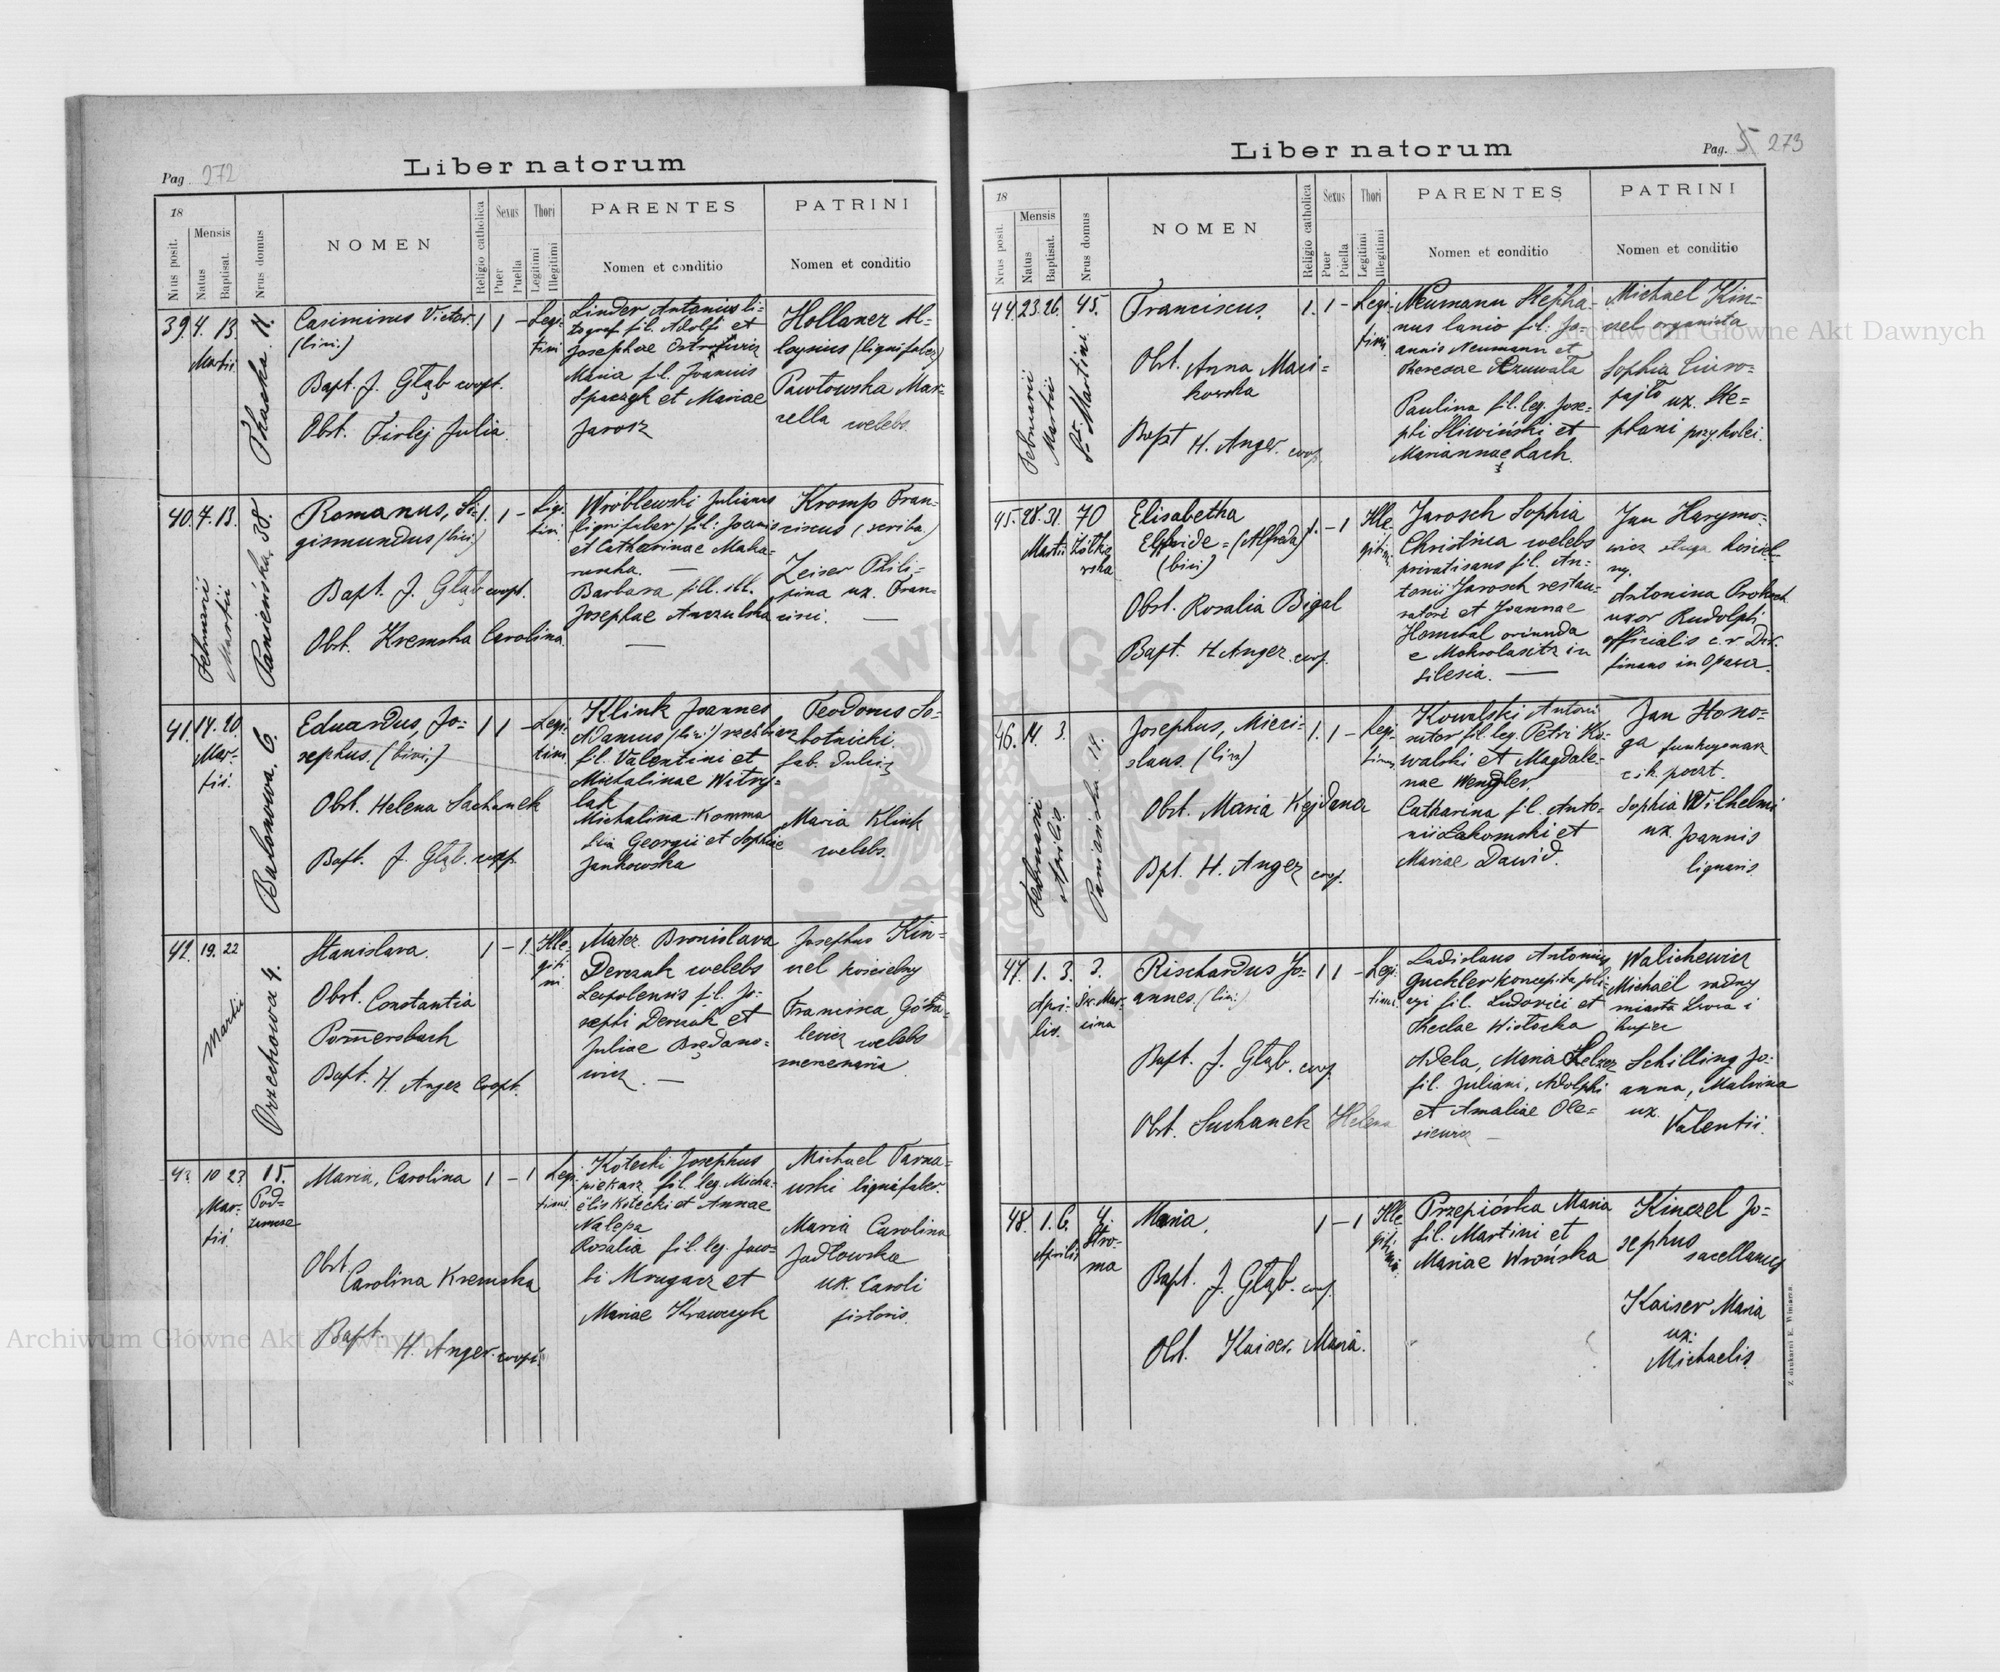 Pag. 272
Liber natorum
18
Nrus posit.
Mensis
Natus
Baptisat.
Nrus domus
NOMEN
Religio catholica
Sexus
Puer
Puella
Thori
Legitimi
Illegitimi
PARENTES
Nomen et conditio
PATRINI
Nomen et conditio
39. 4. 13.
Martii
Ptasia 14.
Casimirus Victor
(bini)
Bapt. J. Głąb coopt.
Obst. Firlej Julia
1 1 -
Legi-
timi
Linder Antonius li-
tograf fil. Adolfi et
Josephae
Maria fil. Joannis
Spaczyk et Mariae
Jarosz
Hollaner Al-
loysius (lignifaber)
Pawłowska Mar-
cella welebs.
40. 7. 13.
Februarii
Martii
Panieńska 38.
Romanus, Si-
gismundus (bini)
Bapt. J. Głąb coopt.
Obst. Kremska Carolina
1. 1 -
Legi-
timi
Wróblewski Julianus
(lignifaber) fil: Joannis
et Catharinae Maka-
ruszka. —
Barbara fill. ill.
Josephae
Kromp Fran-
ciscus (scriba)
Zeiser Phili-
pina ux. Fran-
cisci. —
41. 14. 20.
Mar-
tii.
Balonowa. 6.
Eduardus, Jo-
sephus. (bini)
Obst. Helena Sachanek
Bapt. J. Głąb. coop.
1 1 -
Legi-
timi
Klink Joannes
Adamus (bini) rzeźbiarz
fil. Valentini et
Michalinae Witry-
lak
Michalina Komma
fil. Georgii et Sophiae
Jankowska
Teodorus So-
botnicki
fab.
Maria Klink
welebs.
42. 19. 22
Martii
Orzechowa 4.
Stanislava.
Obst. Constantia
Pom̄ersbach
Bapt. H. Anger Coopt.
1 - 1.
Ille-
giti-
mi.
Mater Bronislava
Derczuk welebs
Leopolensis fil. Jo-
sephi Derczuk et
Juliae Bogdano-
wicz. —
Josephus Kin-
zel kościelny
Francisca Góra-
lewicz welebs
mercenaria
43 10 23
Mar-
tii
15.
Pod-
zamcze
Maria, Carolina
Obst.
Carolina Kremska
Bapt.
H. Anger. coopt.
1 - 1
Legi-
timi
Kotecki Josephus
piekarz fil. leg. Micha-
ëlis Kotecki et Annae
Nalepa
Rosalia fil. leg. Jaco-
bi Mrugacz et
Mariae Krawczyk
Michael Tarna-
wski lignifaber.
Maria Carolina
Jadłowska
ux. Caroli
pistoris.
Pag. 5 273
Liber natorum
18
Nrus posit.
Mensis
Natus
Baptisat.
Nrus domus
NOMEN
Religio catholica
Sexus
Puer
Puella
Thori
Legitimi
Illegitimi
PARENTES
Nomen et conditio
PATRINI
Nomen et conditio
44. 23. 26.
Februarii
Martii
45.
St. Martini
Franciscus.
Obst. Anna Mari-
kowska
Bapt H. Anger. coop.
1. 1 -
Legi-
timi
Neumann Stepha-
nus lanio fil: Jo-
annis Neumann et
Theresae
Paulina fil. leg. Jose-
phi Śliwiński et
Mariannae Lach.
Michael Kin-
zel organista
Sophia
ux. Ste-
phani przy kolei.
45. 28. 31.
Martii
70
Żółkie-
wska
Elisabetha
Elfride = (Alfreda)
(bini)
Obst. Rosalia Bigal
Bapt. H. Anger. coop.
1. - 1
Ille-
gitimi
Jarosch Sophia
Christina welebs
privatisans fil. An-
tonii Jarosch restau-
ratori et Joannae
oriunda
e Mokrolasitz in
Silesia. —
Jan Harymo-
wicz sługa kościel-
ny.
Antonina Prokoch
uxor Rudolphi
officialis c. r. Dir.
finans in Opava.
46. 14. 3.
Februarii
Aprilis.
Panieńska 11.
Josephus, Mieci-
slaus. (bini)
Obst. Maria Kejdana
Bpt. H. Anger coop.
1. 1 -
Legi-
timus
Kowalski Antoni
sutor fil. leg. Petri Ko-
walski et Magdale-
nae Wengler.
Catharina fil. Anto-
nii Łakomski et
Mariae Dawid.
Jan Hono-
ga funkcyonar.
c. i k. poczt.
Sophia Wilhelmi
ux. Joannis
lignaris.
47. 1. 3.
Apri-
lis.
3.
Św. Mar-
cina
Rischardus Jo-
annes. (bini)
Bapt. J. Głąb. coop.
Obst. Suchanek Helena
1 1 -
Legi-
timi.
Ladislaus Antonius
Guckler koncepista poli-
cyi fil. Ludovici et
Theclae Wisłocka
Adela, Maria
fil. Juliani, Adolphi
et Amaliae Ole-
siewicz —
Walichewicz
Michaël radny
miasta Lwowa i
kupiec
Schilling Jo-
anna, Malvina
ux.
Valentii.
48. 1. 6.
Aprilis
4.
Stro-
ma
Maria.
Bapt. J. Głąb. coop.
Obst. Kaiser. Maria.
1 - 1
Ille-
gitima.
Przepiórka Maria
fil. Martini et
Mariae Wrońska
Kinczel Jo-
sephus
sacellanus
Kaiser Maria
ux.
Michaelis
Z drukarni E. Winiarza
Archiwum Główne Akt Dawnych
Archiwum Główne Akt Dawnych
ARCHIWUM GŁÓWNE AKT DAWNYCH